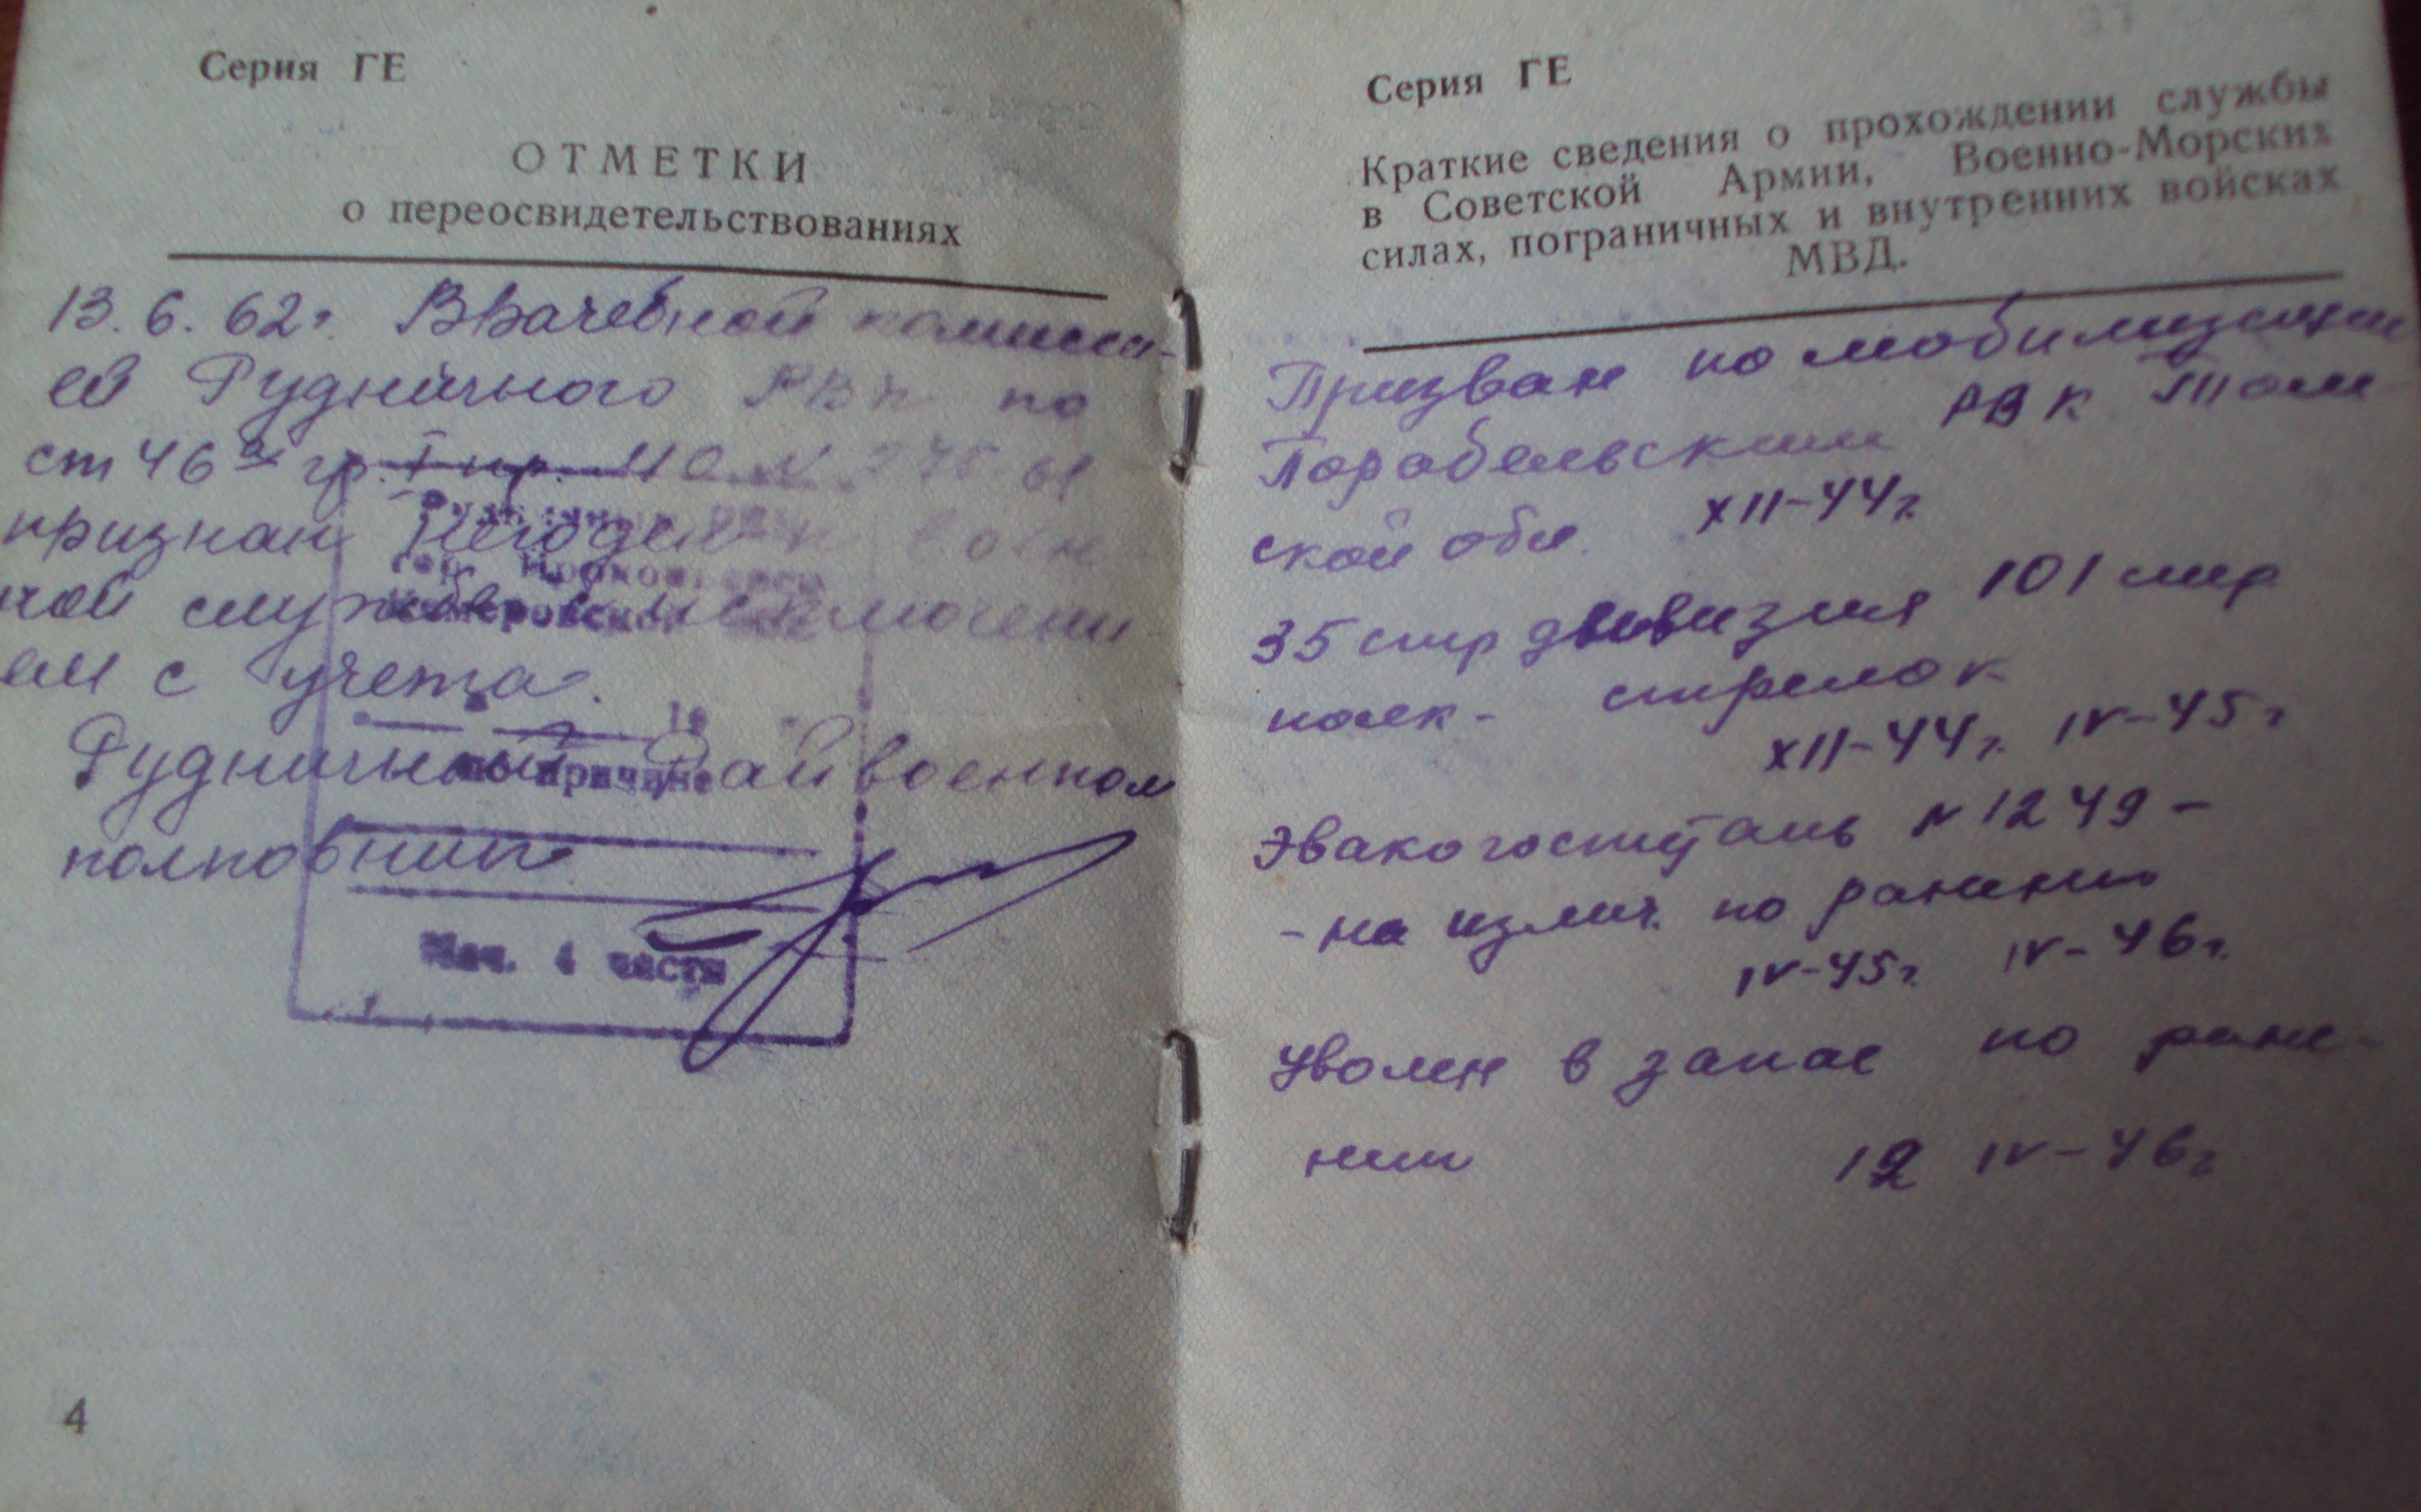 Серия ГЕ
ОТМЕТКИ
о переосвидетельствованиях
13.6.62г. Врачебной комисси-
ей Рудничного РВК по
ст 46 гр. I пр. МО № 275 61
признан негоден к воен
ной службе с исключени-
ем с учета.
Рудничный Райвоенком
полковник
Рудничный РВК
гор. Прокопьевск
Кемеровской обл
19
по причине
Нач. 4 части
4
Серия ГЕ
Краткие сведения о прохождении службы
в Советской Армии, Военно-Морских
силах, пограничных и внутренних войсках
МВД.
Призван по мобилизации
Парабельским РВК Том
ской обл. XII-44г.
35 стр дивизия 101 стр
полк - стрелок
XII-44г. IV-45г
Эвакогоспиталь N 1249 -
- на излич. по ранению
IV-45г. IV-46г.
Уволен в запас по ране-
нию 12 IV-46г